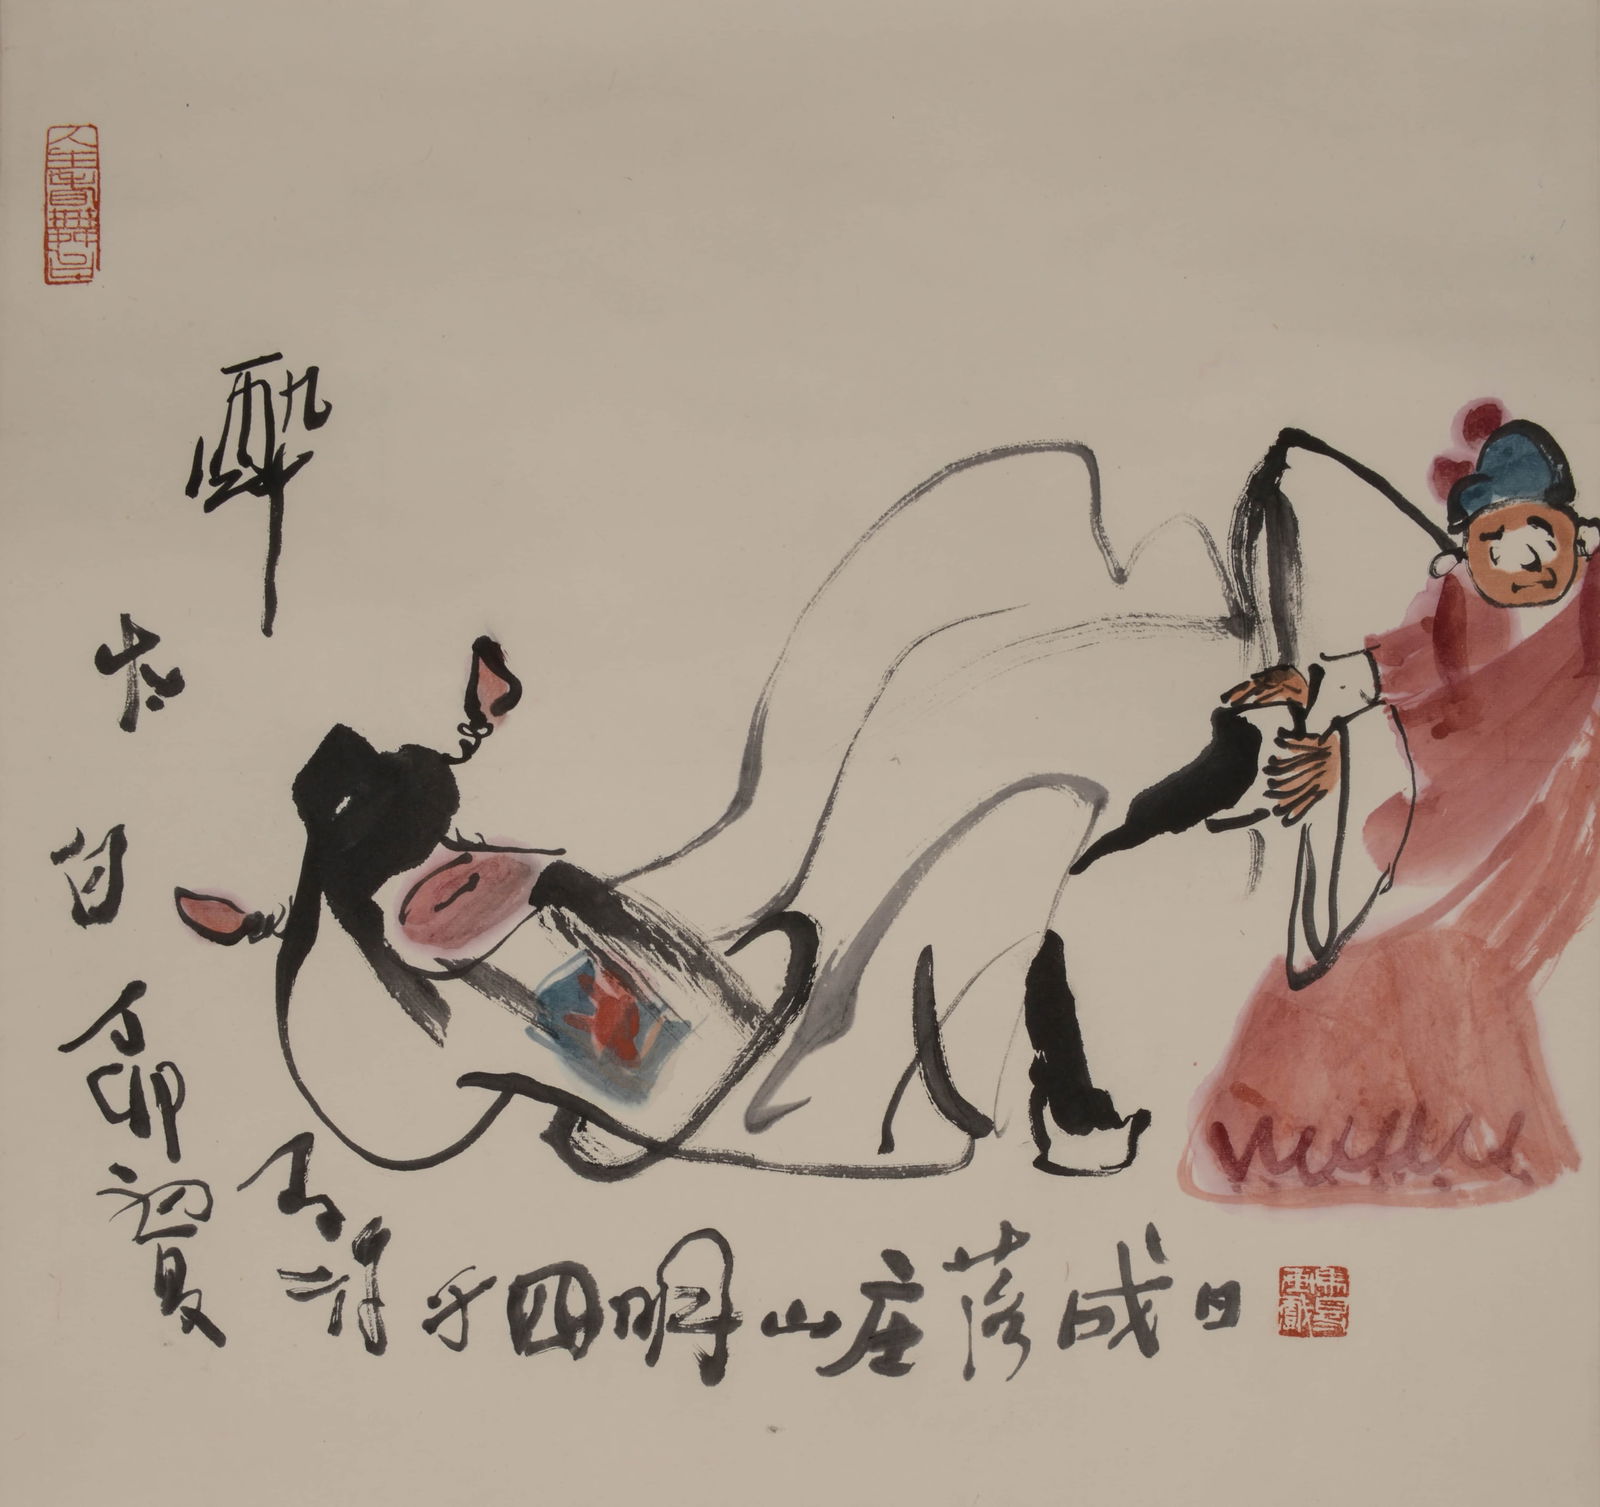 醉
太
白
丁卯
初夏
于四明山庄落成日